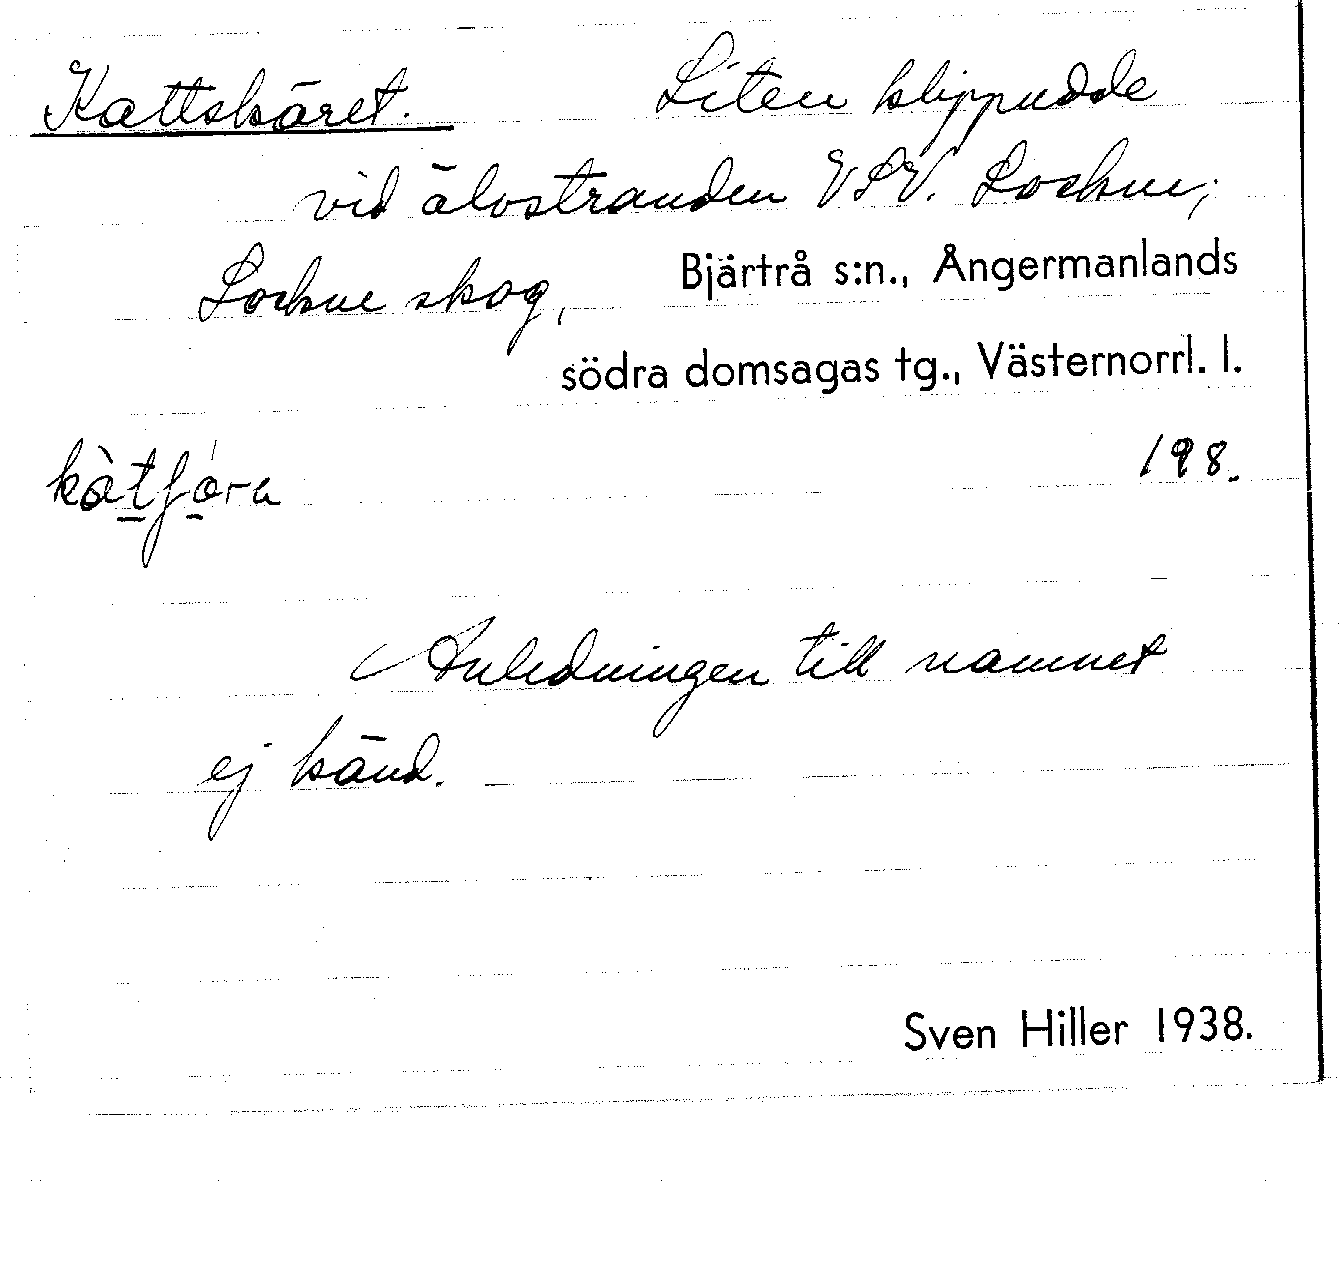 Kattskäret. Liten klippudde
vid älvstranden VSV. Lockne,
Lockne skog, Bjärtrå s:n., Ångermanlands
södra domsagas tg., Västernorrl. l.
198.
Anledningen till namnet
ej känd.
Sven Hiller 1938.